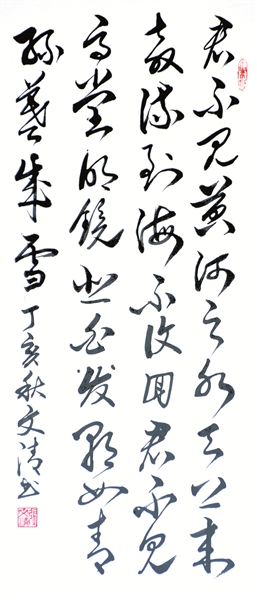 君不見黃河之水天上來
奔流到海不復回君不見
高堂明鏡悲白髮朝如青
絲暮成雪 丁亥秋文清书